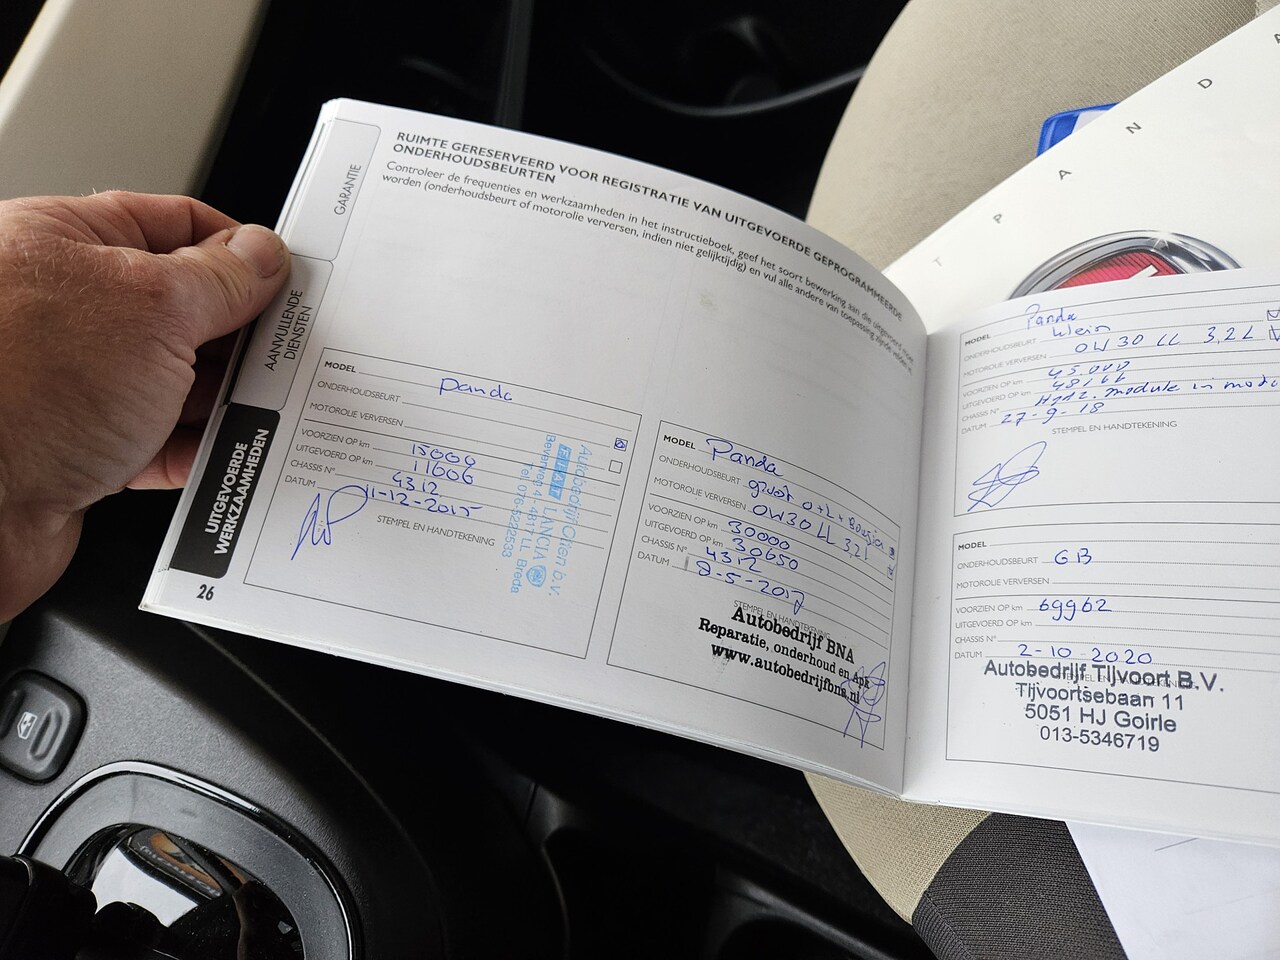 GARANTIE
AANVULLENDE
DIENSTEN
UITGEVOERDE
WERKZAAMHEDEN
26
RUIMTE GERESERVEERD VOOR REGISTRATIE VAN UITGEVOERDE GEPROGRAMMEERDE
ONDERHOUDSBEURTEN
Controleer de frequenties en werkzaamheden in het instructieboek, geef het soort bewerking aan die uitgevoerd moet
worden (onderhoudsbeurt of motorolie verversen, indien niet gelijktijdig) en vul alle andere van toepassing zijnde velden
MODEL Panda
ONDERHOUDSBEURT
MOTOROLIE VERVERSEN
VOORZIEN OP km 15000
UITGEVOERD OP km 11606
CHASSIS N° 4312
DATUM 11-12-2015
STEMPEL EN HANDTEKENING
Autobedrijf Otten b.v.
FIAT LANCIA
Beverweg 4 - 4817 LL Breda
Tel. 076-5222533
MODEL Panda
ONDERHOUDSBEURT groot O+L+Bougies
MOTOROLIE VERVERSEN 0W30 LL 3,2L
VOORZIEN OP km 30000
UITGEVOERD OP km 30650
CHASSIS N° 4312
DATUM 8-5-2017
STEMPEL EN HANDTEKENING
Autobedrijf BNA
Reparatie, onderhoud en Apk
www.autobedrijfbna.nl
PANDA
MODEL Panda
ONDERHOUDSBEURT klein
MOTOROLIE VERVERSEN 0W30 LL 3,2L
VOORZIEN OP km 45.000
UITGEVOERD OP km 48166
CHASSIS N° module in
DATUM 27-9-18
STEMPEL EN HANDTEKENING
MODEL
ONDERHOUDSBEURT GB
MOTOROLIE VERVERSEN
VOORZIEN OP km 69962
UITGEVOERD OP km
CHASSIS N°
DATUM 2-10-2020
Autobedrijf Tijvoort B.V.
Tijvoortsebaan 11
5051 HJ Goirle
013-5346719